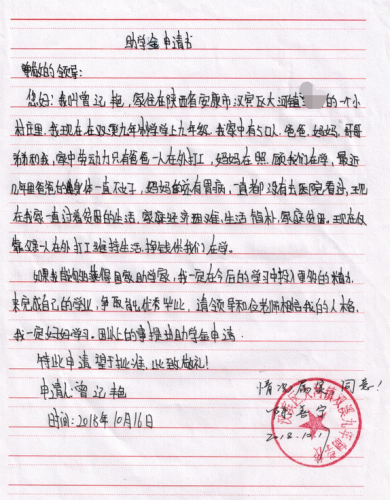 助学金申请书
尊敬的领导:
您好!我叫曾记艳,家住在陕西省安康市汉滨区大河镇 的一个小
村庄里,我现在在双溪九年制学校上九年级,我家中有5口人,爸爸,妈妈,哥哥
弟弟和我,家中劳动力只有爸爸一人在外打工,妈妈在照顾我们在学,最近
几年里爸爸的身体一直不好,妈妈也有胃病,一直都没有去医院看过,现
在我家一直过着贫困的生活,家庭经济困难,生活俭朴,家庭贫困。现在仅
靠父亲一人在外打工维持生活,挣钱供我们在学。
如果我能够获得国家助学金,我一定在今后的学习中投入更多的精力
来完成自己的学业,争取能优秀毕业,请领导和位老师相信我的人格,
我一定好好学习。因以上的事提出助学金申请。
特此申请 望予批准,此致敬礼!
申请人:曾记艳
情况属实,同意!
时间:2018年10月16日
2018.10.17